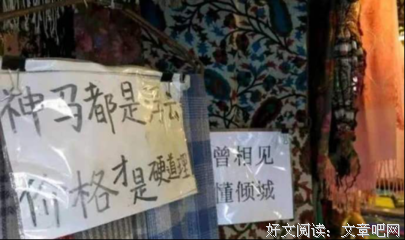 神马都是浮云
价格才是硬道理
曾相见
倾城
好文阅读：文章吧网